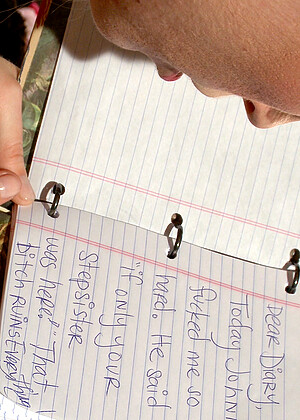 Dear Diary
Today John
fucked me so
hard. He said
"if only your
Stepsister
was here". That
bitch RUNS Everything